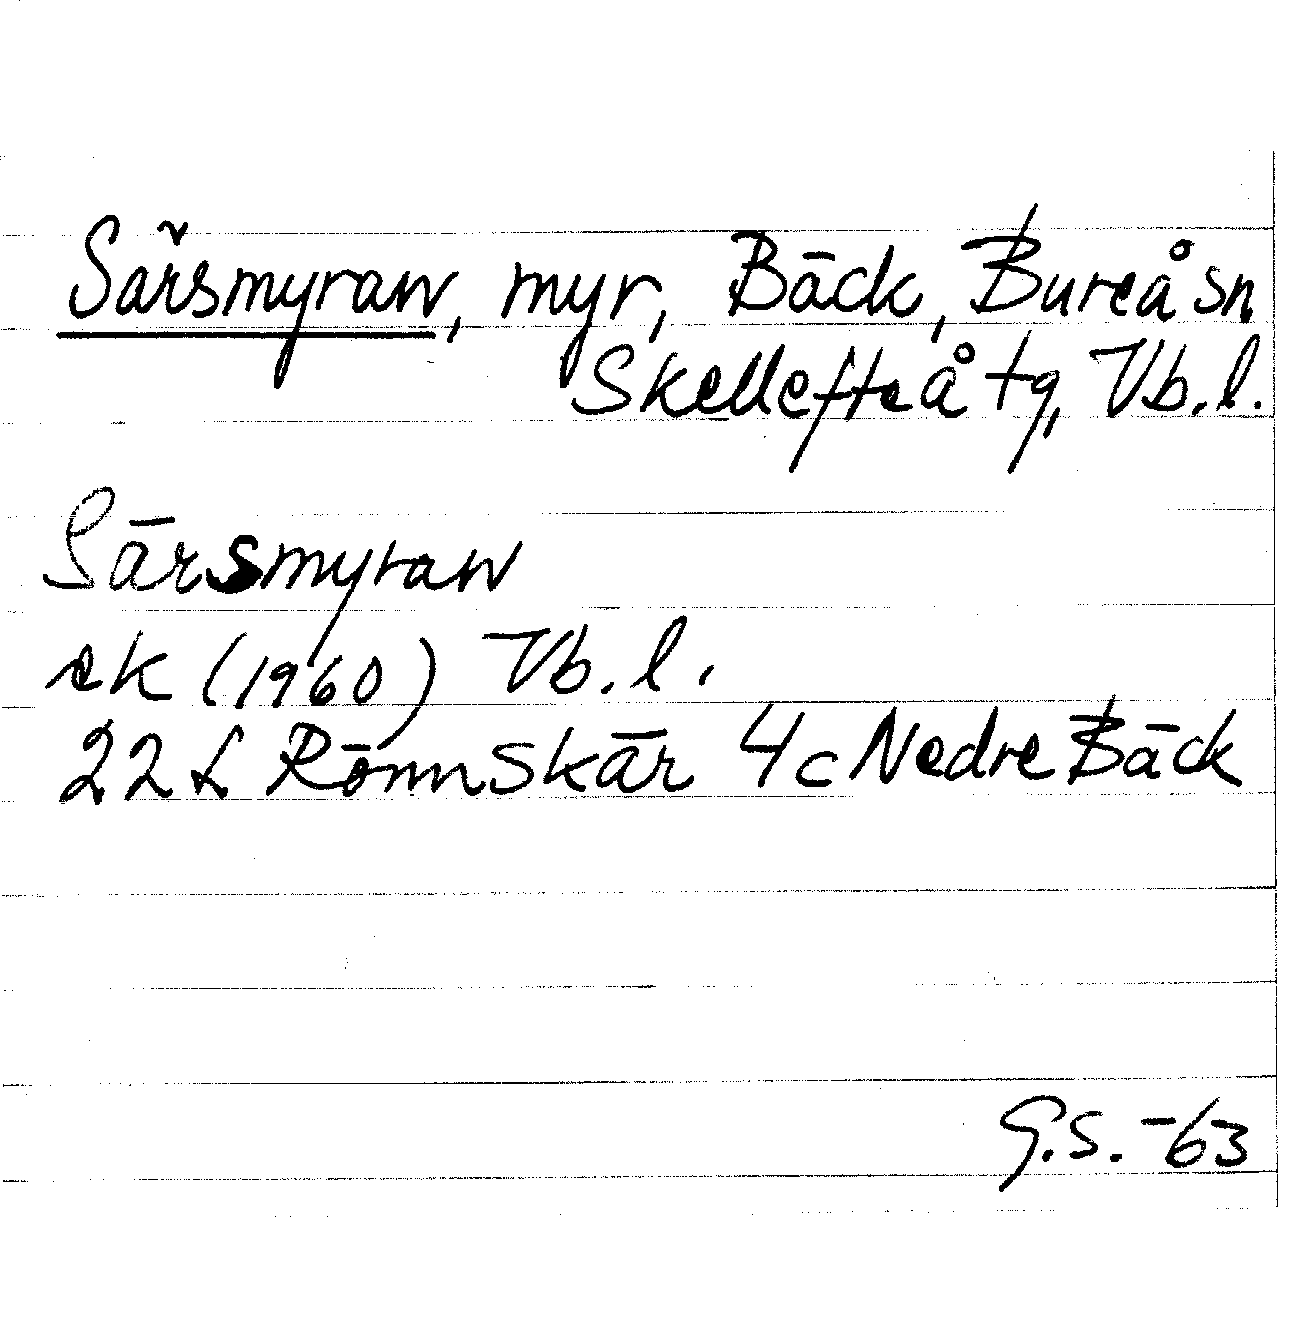 Särsmyran, myr, Bäck, Bureå sn
Skellefteå tg, Vb.l.
Särsmyran
ek (1960) Vb.l.
22 L Rönnskär 4c Nedre Bäck
G.S. -63